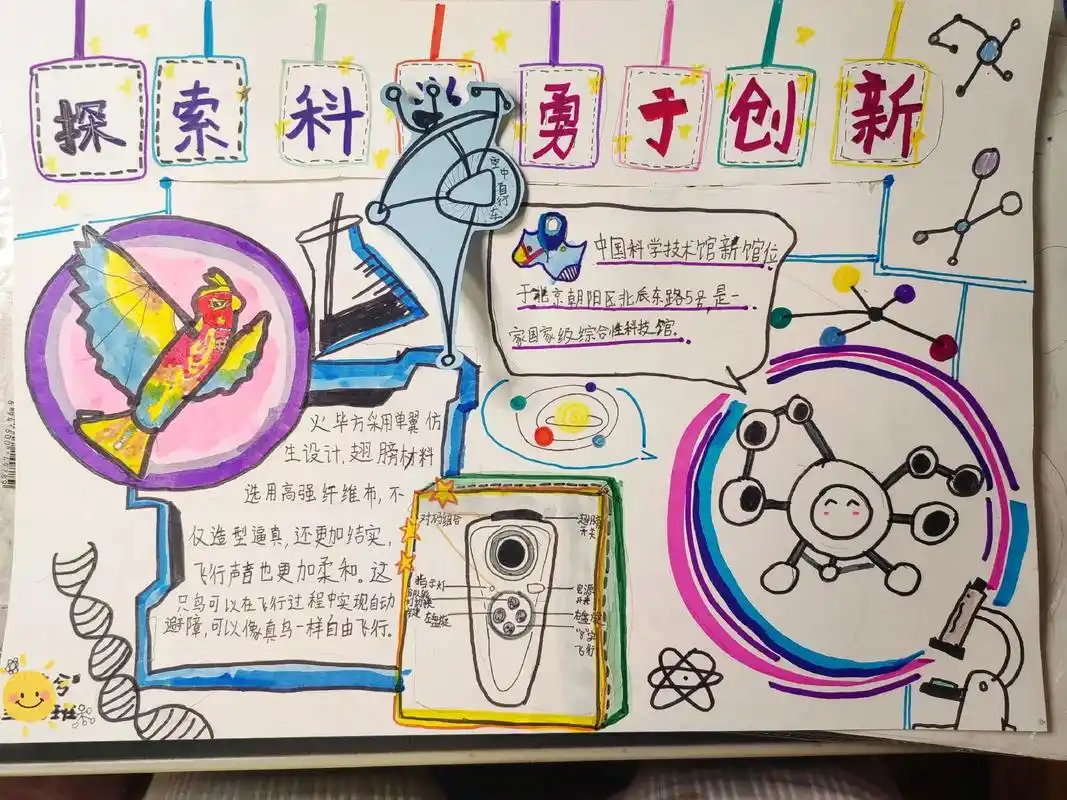 探索科学勇于创新
空中自行车
中国科学技术馆新馆位
于北京朝阳区北辰东路5号是一
家国家级综合性科技馆.
火毕方采用单翼仿
生设计,翅膀材料
选用高强纤维布,不
仅造型逼真,还更加结实,
飞行声音也更加柔和。这
只鸟可以在飞行过程中实现自动
避障,可以像真鸟一样自由飞行.
对码组合
翅膀
开关
指示灯
电源
开关
右盘旋
左盘旋
"8"字
飞行
班